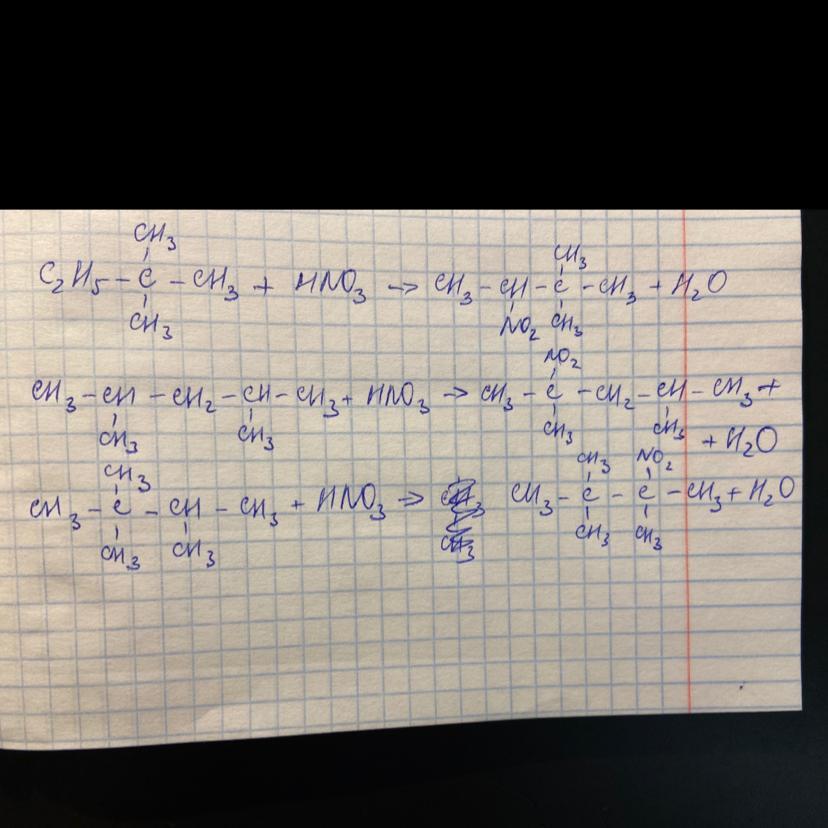 CH₃ CH₃
C₂H₅ – C – CH₃ + HNO₃ → CH₃ – CH – C – CH₃ + H₂O
CH₃ NO₂ CH₃
NO₂
CH₃ – CH – CH₂ – CH – CH₃ + HNO₃ → CH₃ – C – CH₂ – CH – CH₃ +
CH₃ CH₃ CH₃ CH₃ + H₂O
CH₃ CH₃ NO₂
CH₃ – C – CH – CH₃ + HNO₃ → CH₃ – C – C – CH₃ + H₂O
CH₃ CH₃ CH₃ CH₃